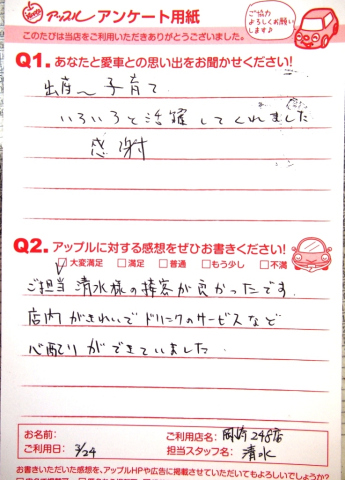 アップル アンケート用紙
ご協力
よろしくお願い
します♪
このたびは当店をご利用いただきありがとうございました。
Q1. あなたと愛車との思い出をお聞かせください!
出産〜子育て
いろいろと活躍してくれました
感謝
Q2. アップルに対する感想をぜひお書きください!
□大変満足 □満足 □普通 □もう少し □不満
ご担当 清水様の接客が良かったです。
店内がきれいでドリンクのサービスなど
心配りができていました
お名前:
ご利用店名: 岡崎248店
ご利用日: 3/24
担当スタッフ名: 清水
お書きいただいた感想を、アップルHPや広告に掲載させていただいてもよろしいでしょうか?